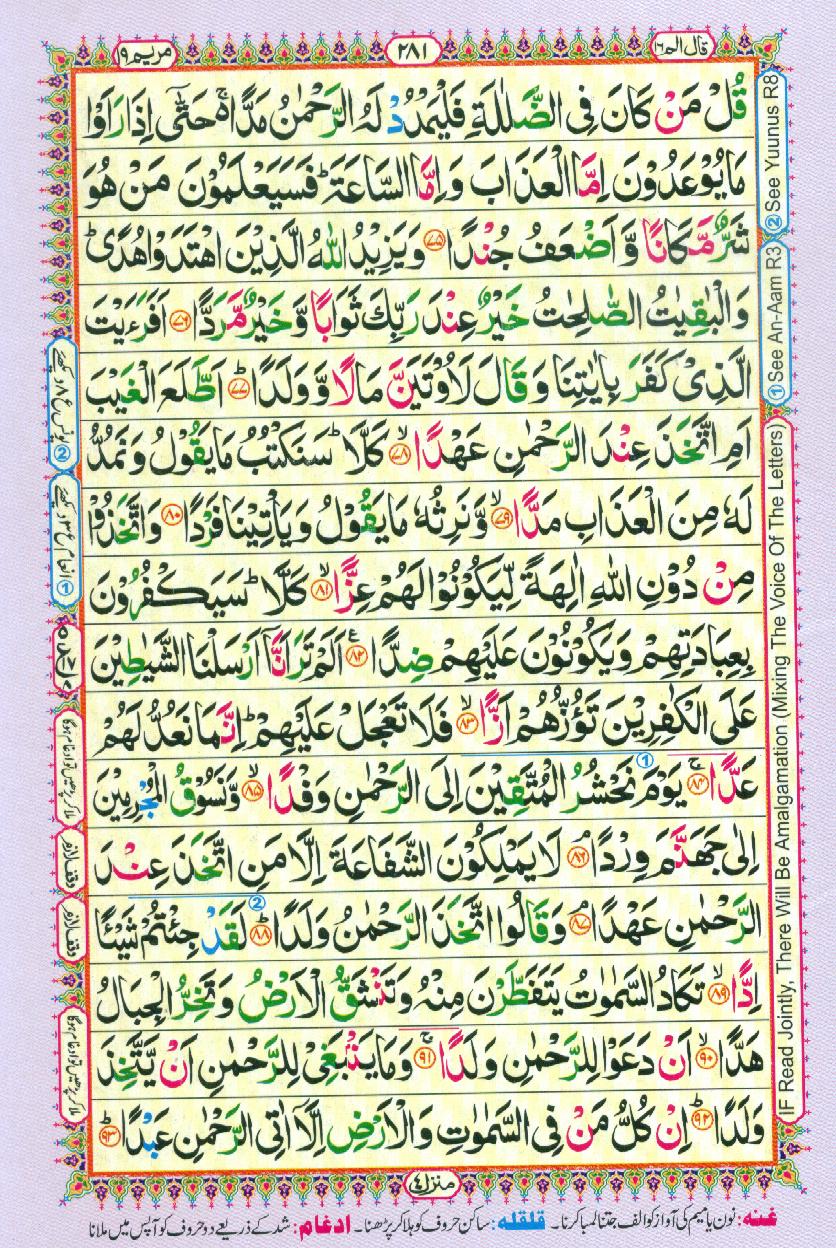 قال الم ١٦
٢٨١
مریم ١٩
قُلْ مَنْ كَانَ فِی الضَّلٰلَةِ فَلْیَمْدُدْ لَهُ الرَّحْمٰنُ مَدًّا ۚ۬ حَتّٰۤی اِذَا رَاَوْا
مَا یُوْعَدُوْنَ اِمَّا الْعَذَابَ وَ اِمَّا السَّاعَةَ ؕ فَسَیَعْلَمُوْنَ مَنْ هُوَ
شَرٌّ مَّكَانًا وَّ اَضْعَفُ جُنْدًا ﴿٧٥﴾ وَ یَزِیْدُ اللّٰهُ الَّذِیْنَ اهْتَدَوْا هُدًی ؕ
وَ الْبٰقِیٰتُ الصّٰلِحٰتُ خَیْرٌ عِنْدَ رَبِّكَ ثَوَابًا وَّ خَیْرٌ مَّرَدًّا ﴿٧٦﴾ اَفَرَءَیْتَ
الَّذِیْ كَفَرَ بِاٰیٰتِنَا وَ قَالَ لَاُوْتَیَنَّ مَالًا وَّ وَلَدًا ﴿٧٧﴾ؕ اَطَّلَعَ الْغَیْبَ
اَمِ اتَّخَذَ عِنْدَ الرَّحْمٰنِ عَهْدًا ﴿٧٨﴾ۙ كَلَّا ؕ سَنَكْتُبُ مَا یَقُوْلُ وَ نَمُدُّ
لَهٗ مِنَ الْعَذَابِ مَدًّا ﴿٧٩﴾ۙ وَّ نَرِثُهٗ مَا یَقُوْلُ وَ یَاْتِیْنَا فَرْدًا ﴿٨٠﴾ وَ اتَّخَذُوْا
مِنْ دُوْنِ اللّٰهِ اٰلِهَةً لِّیَكُوْنُوْا لَهُمْ عِزًّا ﴿٨١﴾ۙ كَلَّا ؕ سَیَكْفُرُوْنَ
بِعِبَادَتِهِمْ وَ یَكُوْنُوْنَ عَلَیْهِمْ ضِدًّا ﴿٨٢﴾ اَلَمْ تَرَ اَنَّاۤ اَرْسَلْنَا الشَّیٰطِیْنَ
عَلَی الْكٰفِرِیْنَ تَؤُزُّهُمْ اَزًّا ﴿٨٣﴾ۙ فَلَا تَعْجَلْ عَلَیْهِمْ ؕ اِنَّمَا نَعُدُّ لَهُمْ
عَدًّا ﴿٨٤﴾ۚ یَوْمَ نَحْشُرُ الْمُتَّقِیْنَ اِلَی الرَّحْمٰنِ وَفْدًا ﴿٨٥﴾ۙ وَّ نَسُوْقُ الْمُجْرِمِیْنَ
اِلٰی جَهَنَّمَ وِرْدًا ﴿٨٦﴾ۘ لَا یَمْلِكُوْنَ الشَّفَاعَةَ اِلَّا مَنِ اتَّخَذَ عِنْدَ
الرَّحْمٰنِ عَهْدًا ﴿٨٧﴾ۘ وَ قَالُوا اتَّخَذَ الرَّحْمٰنُ وَلَدًا ﴿٨٨﴾ؕ لَقَدْ جِئْتُمْ شَیْئًا
اِدًّا ﴿٨٩﴾ۙ تَكَادُ السَّمٰوٰتُ یَتَفَطَّرْنَ مِنْهُ وَ تَنْشَقُّ الْاَرْضُ وَ تَخِرُّ الْجِبَالُ
هَدًّا ﴿٩٠﴾ۙ اَنْ دَعَوْا لِلرَّحْمٰنِ وَلَدًا ﴿٩١﴾ۚ وَ مَا یَنْۢبَغِیْ لِلرَّحْمٰنِ اَنْ یَّتَّخِذَ
وَلَدًا ﴿٩٢﴾ؕ اِنْ كُلُّ مَنْ فِی السَّمٰوٰتِ وَ الْاَرْضِ اِلَّاۤ اٰتِی الرَّحْمٰنِ عَبْدًا ﴿٩٣﴾ؕ
منزل ٤
غنه: نون یا میم کی آواز کو الف جتنا لمبا کرنا۔ قلقله: ساکن حروف کو ہلا کر پڑھنا۔ ادغام: شد کے ذریعے دو حروف کو آپس میں ملانا
② See Yuunus R8
① See An-Aam R3
IF Read Jointly, There Will Be Amalgamation (Mixing The Voice Of The Letters)
② یونس رع ۸ دیکھیئے
① انعام رع ۳ دیکھیئے
ملا کر پڑھیں تو ادغام ہوگا
وقف لازم
وقف لازم
ملا کر پڑھیں تو ادغام ہوگا